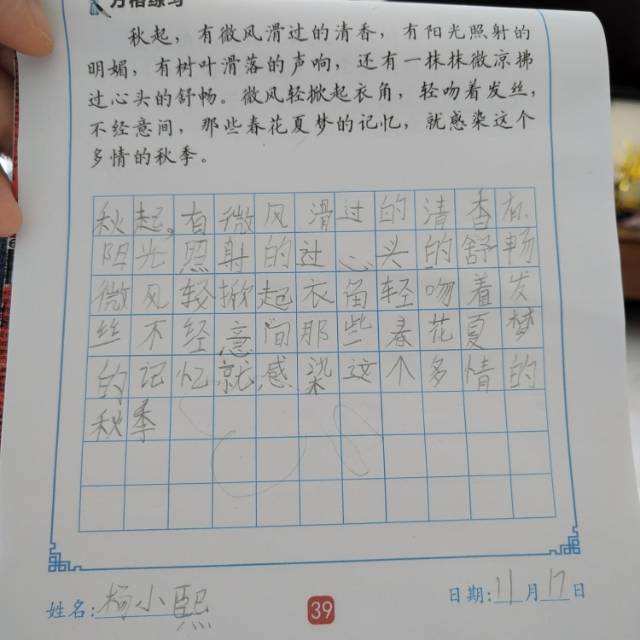 方格练习
秋起，有微风滑过的清香，有阳光照射的
明媚，有树叶滑落的声响，还有一抹抹微凉拂
过心头的舒畅。微风轻掀起衣角，轻吻着发丝，
不经意间，那些春花夏梦的记忆，就感染这个
多情的秋季。
秋起。有微风滑过的清香有
阳光照射的过心头的舒畅
微风轻掀起衣角轻吻着发
丝不经意间那些春花夏梦
的记忆就感染这个多情的
秋季
姓名：杨小熙
39
日期：11月17日